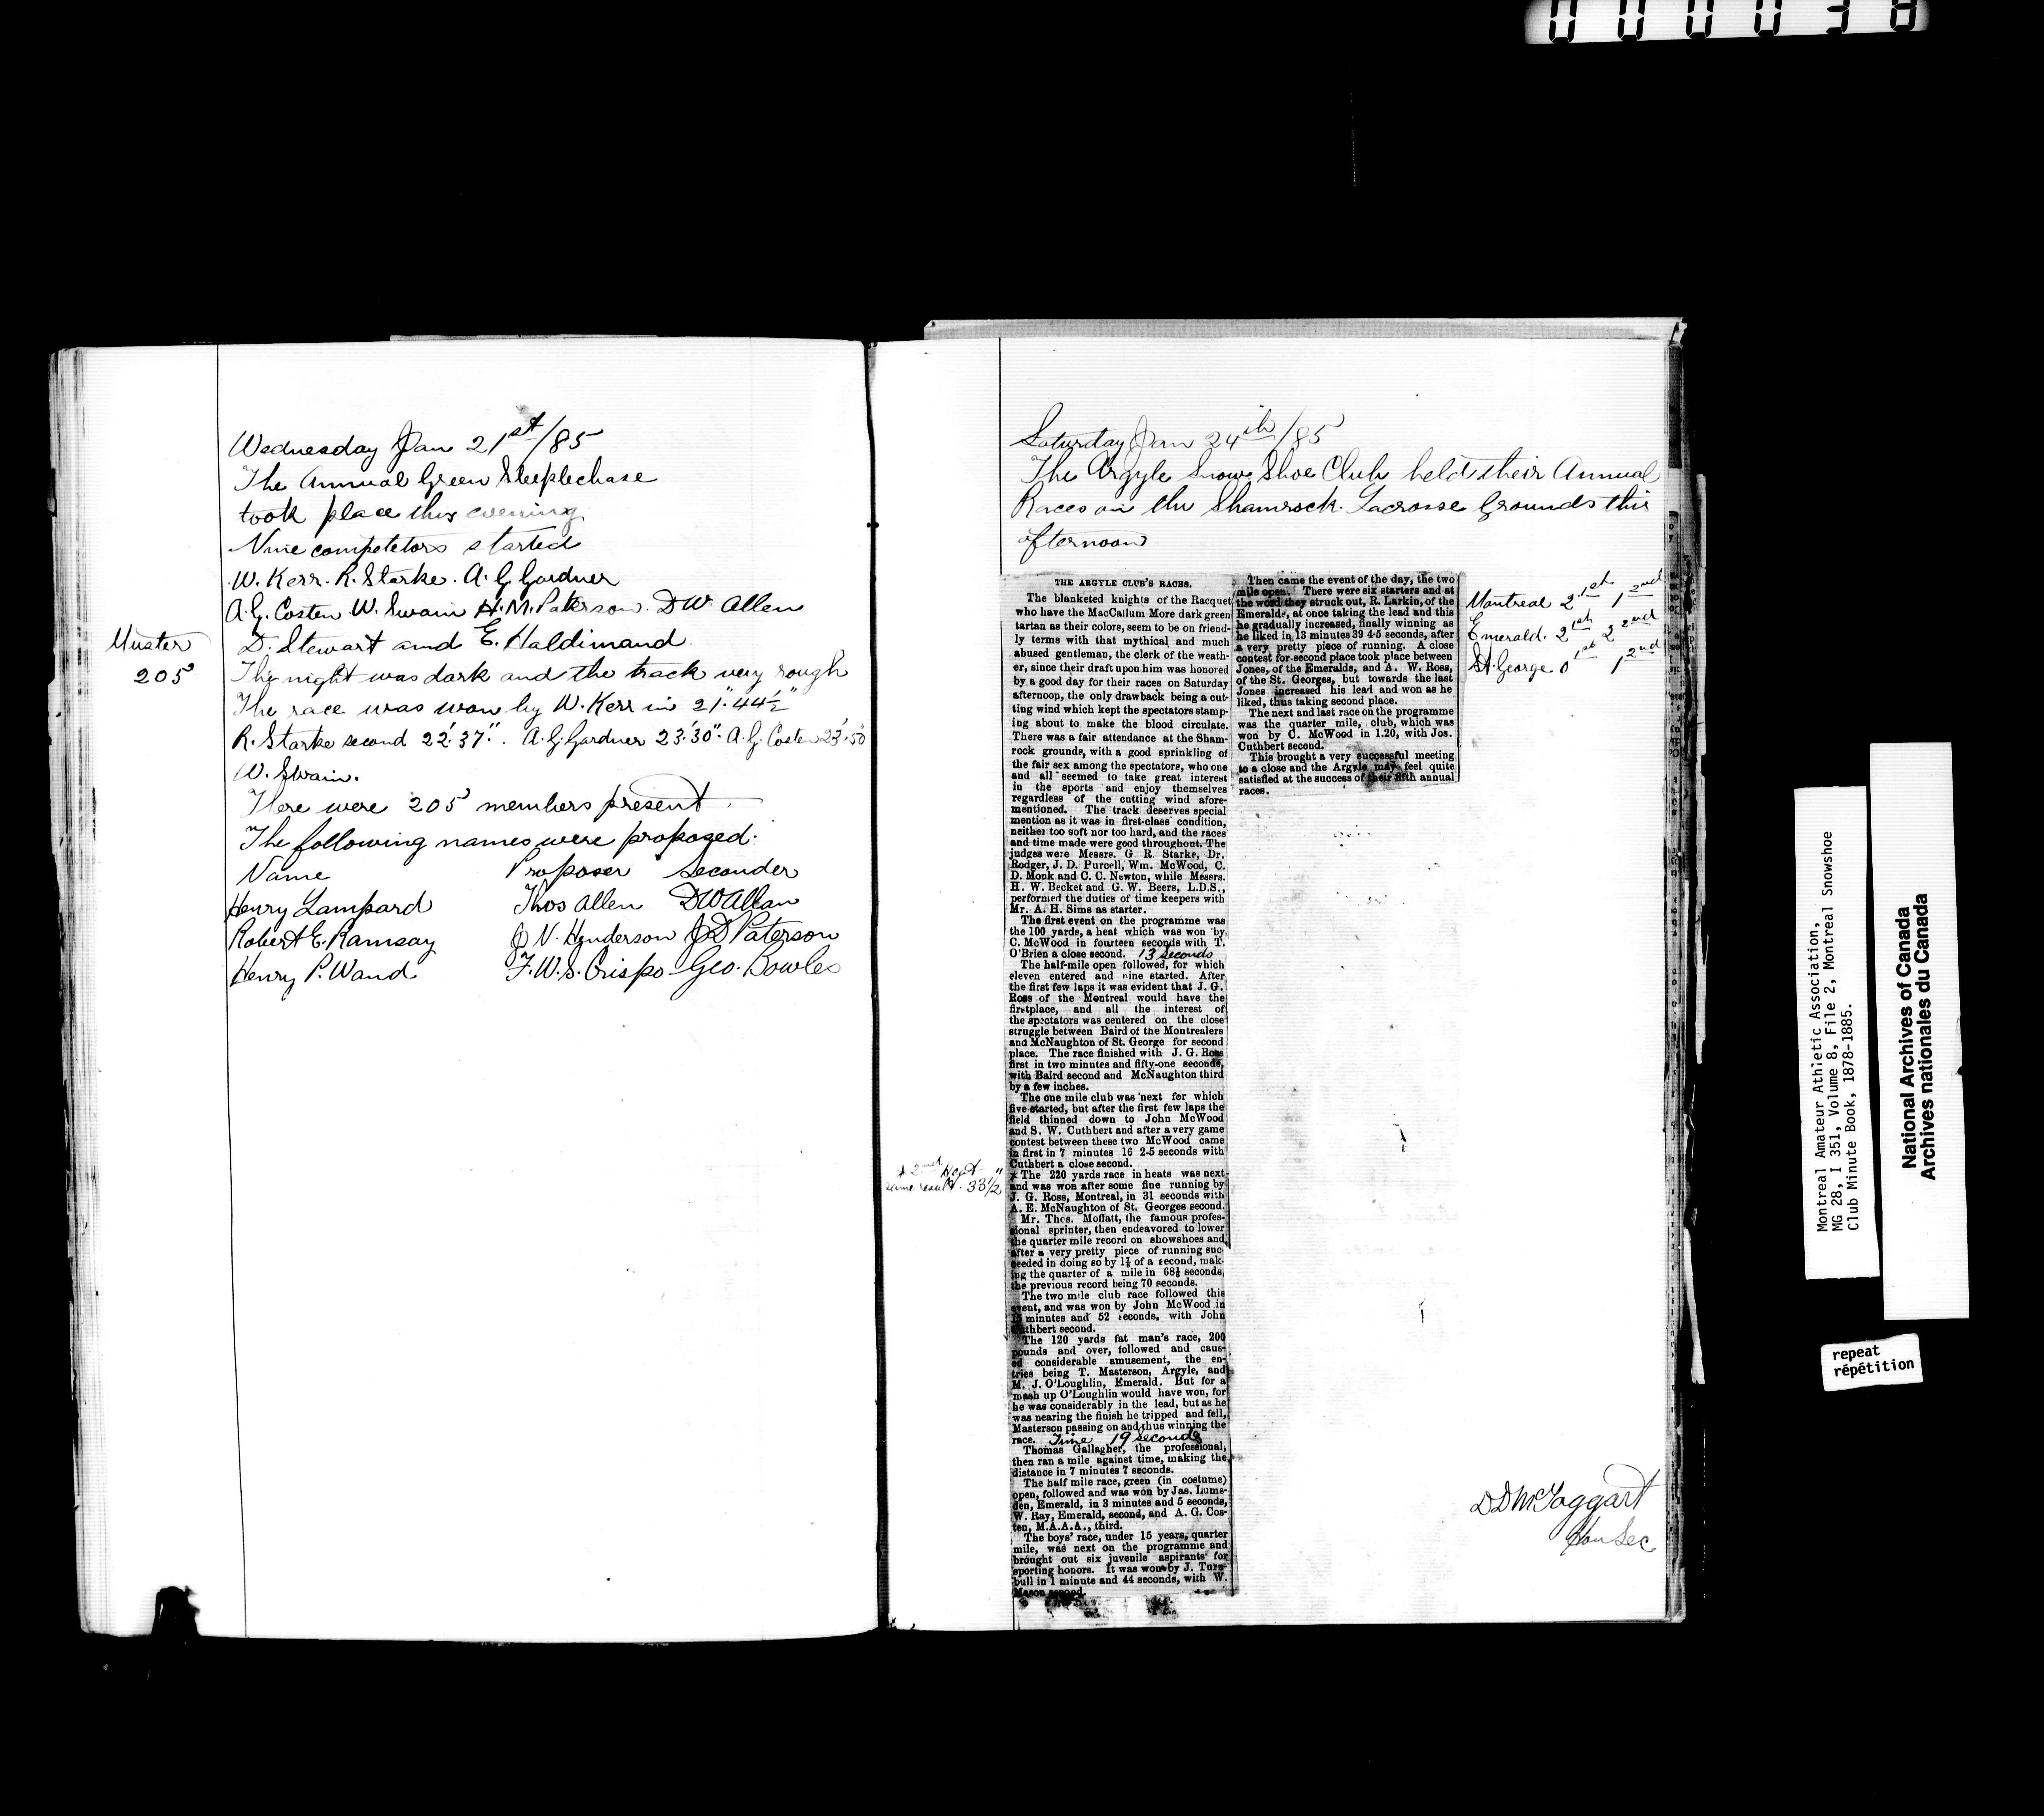 000038
Wednesday Jan 21st/85
The Annual Green Steeplechase
took place this evening
Nine competetors started
W. Kerr. R. Starke. A. G. Gardner
A. G. Costen W. Swain H. M. Paterson. D W. Allen
Muster
205
D. Stewart and E. Haldimand
The night was dark and the track very rough
The race was won by W. Kerr in 21".44½"
R. Starke second 22'.37". A. G. Gardner 23'.30". A. G. Costen 23'.50"
W. Swain.
There were 205 members present
The following names were proposed:
Name Proposer Seconder
Henry Lampard Thos Allen DW Allan
Robert E. Ramsay J N. Henderson J D Paterson
Henry P. Wand F. W. S. Crispo Geo. Bowles
Saturday Jan 24th/85
The Argyle Snow Shoe Club held their Annual
Races on the Shamrock Lacrosse Grounds this
afternoon
THE ARGYLE CLUB'S RACES.
The blanketed knights of the Racquet
who have the MacCallum More dark green
tartan as their colors, seem to be on friend-
ly terms with that mythical and much
abused gentleman, the clerk of the weath-
er, since their draft upon him was honored
by a good day for their races on Saturday
afternoon, the only drawback being a cut-
ting wind which kept the spectators stamp-
ing about to make the blood circulate.
There was a fair attendance at the Sham-
rock grounds, with a good sprinkling of
the fair sex among the spectators, who one
and all seemed to take great interest
in the sports and enjoy themselves
regardless of the cutting wind afore-
mentioned. The track deserves special
mention as it was in first-class condition,
neither too soft nor too hard, and the races
and time made were good throughout. The
judges were Messrs. G. R. Starke, Dr.
Rodger, J. D. Purcell, Wm. McWood, C.
D. Monk and C. C. Newton, while Messrs.
H. W. Becket and G. W. Beers, L.D.S.,
performed the duties of time keepers with
Mr. A. H. Sims as starter.
The first event on the programme was
the 100 yards, a heat which was won by
C. McWood in fourteen seconds with T.
O'Brien a close second. 13 seconds
The half-mile open followed, for which
eleven entered and nine started. After
the first few laps it was evident that J. G.
Ross of the Montreal would have the
firstplace, and all the interest of
the spectators was centered on the close
struggle between Baird of the Montrealers
and McNaughton of St. George for second
place. The race finished with J. G. Ross
first in two minutes and fifty-one seconds,
with Baird second and McNaughton third
by a few inches.
The one mile club was next for which
five started, but after the first few laps the
field thinned down to John McWood
and S. W. Cuthbert and after a very game
contest between these two McWood came
in first in 7 minutes 16 2-5 seconds with
Cuthbert a close second.
* 2nd Heat
same result. 33½"
* The 220 yards race in heats was next
and was won after some fine running by
J. G. Ross, Montreal, in 31 seconds with
A. E. McNaughton of St. Georges second.
Mr. Thos. Moffatt, the famous profes-
sional sprinter, then endeavored to lower
the quarter mile record on showshoes and
after a very pretty piece of running suc
ceeded in doing so by 1½ of a second, mak-
ing the quarter of a mile in 68½ seconds,
the previous record being 70 seconds.
The two mile club race followed this
event, and was won by John McWood in
15 minutes and 52 seconds, with John
Cuthbert second.
The 120 yards fat man's race, 200
pounds and over, followed and caus-
ed considerable amusement, the en-
tries being T. Masterson, Argyle, and
M. J. O'Loughlin, Emerald. But for a
mash up O'Loughlin would have won, for
he was considerably in the lead, but as he
was nearing the finish he tripped and fell,
Masterson passing on and thus winning the
race. Time 19 seconds
Thomas Gallagher, the professional,
then ran a mile against time, making the
distance in 7 minutes 7 seconds.
The half mile race, green (in costume)
open, followed and was won by Jas. Lums-
den, Emerald, in 3 minutes and 5 seconds,
W. Ray, Emerald, second, and A. G. Cos-
ten, M.A.A.A., third.
The boys' race, under 15 years, quarter
mile, was next on the programme and
brought out six juvenile aspirants for
sporting honors. It was won by J. Turn-
bull in 1 minute and 44 seconds, with W.
Mason second.
Then came the event of the day, the two
mile open. There were six starters and at
the word they struck out, R. Larkin, of the
Emeralds, at once taking the lead and this
he gradually increased, finally winning as
he liked in 13 minutes 39 4-5 seconds, after
a very pretty piece of running. A close
contest for second place took place between
Jones, of the Emeralds, and A. W. Ross,
of the St. Georges, but towards the last
Jones increased his lead and won as he
liked, thus taking second place.
The next and last race on the programme
was the quarter mile, club, which was
won by C. McWood in 1.20, with Jos.
Cuthbert second.
This brought a very successful meeting
to a close and the Argyle may feel quite
satisfied at the success of their fifth annual
races.
Montreal 2 1st 1 2nd
Emerald. 2 1st 2 2nd
St. George 0 1st 1 2nd
D D McTaggart
Hon Sec
Montreal Amateur Athletic Association,
MG 28, I 351, Volume 8, File 2, Montreal Snowshoe
Club Minute Book, 1878-1885.
National Archives of Canada
Archives nationales du Canada
repeat
répétition